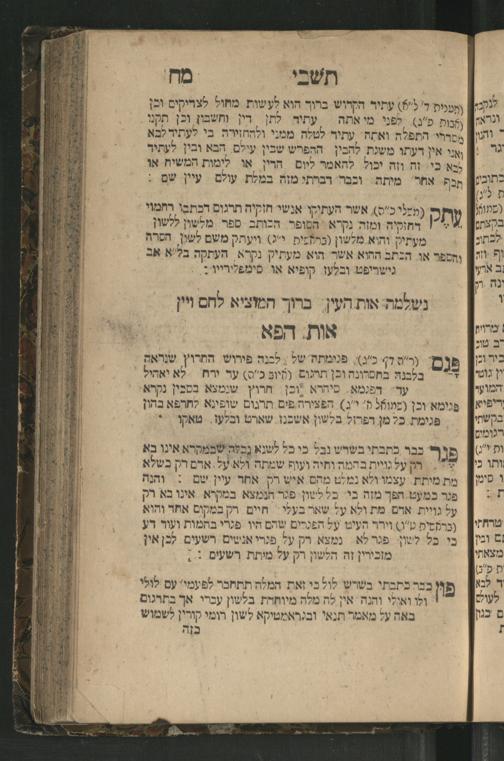 תשבי מח
(תענית ד' ל"א) עתיד הקדוש ברוך הוא לעשות מחול לצדיקים וכן
(אבות פ"ג) לפני מי אתה עתיד לתן דין וחשבון וכן תקנו
מסדרי התפלה ואתה עתיד לטלה ממני ולהחזירה בי לעתיד לבא
ואני אין דעתי משגת להבין ההפרש שבין עולם הבא ובין לעתיד
לבא כי זה וזה יכול להאמר ליום הדין או לימות המשיח או
תכף אחר מיתה וכבר דברתי מזה במלת עולם עיין שם :
עתק (משלי כ"ה) אשר העתיקו אנשי חזקיה תרגום דכתבו רחמוי
דחזקיה ומזה נקרא הסופר הכותב ספר מלשון ללשון
מעתיק והוא מלשון (בראשית י"ב) ויעתק משם לשון הסרה
והספר או הכתב ההוא אשר הוא מעתיק נקרא העתקה בל"א אב
גישריפט ובלעז קופיא או סימפלירייו :
נשלמה אות העין, ברוך המוציא לחם ויין
אות הפא
פגם (ר"ה דף כ"ג) פגימתה של לבנה פירוש החרוץ שנראה
בלבנה בחסרונה וכן תרגום (איוב כ"ה) עד ירח לא יאהיל
עד דפגמא סיהרא וכן חרוץ שנמצא בסכין נקרא
פגימא וכן (שמואל א' י"ג) הפצירה פים תרגום שופינא לחרפא בהון
פגימת כל מן דפרזל בלשון אשכנז שארט ובלעז טאקו
פגר כבר כתבתי בשרש נבל כי כל לשון נבלה שבמקרא אינו בא
רק על גויית בהמה וחיה ועוף שמתה ולא על אדם רק כשלא
מת מיתת עצמו ולא נמלט מהם איש רק אחד עיין שם : והנה
פגר כמעט הפך מזה כי כל לשון פגר הנמצא במקרא אינו בא רק
על גויית אדם מת ולא על שאר בעלי חיים רק במקום אחד והוא
(בראשית ט"ו) וירד העיט על הפגרים שהם היו פגרי בהמות ועוד דע
כי כל לשון פגר לא נמצא רק על פגרי אנשים רשעים לכן אין
מזכירין זה הלשון רק על מיתת רשעים :
פון כבר כתבתי בשרש לול כי זאת המלה תתחבר לפעמי' עם לולי
ולו ואולי והנה אין לה מלה מיוחדת בלשון עברי אך בתרגום
באה על מאמר תנאי ובגראמטיקא לשון רומי קורין לשמוש
כזה